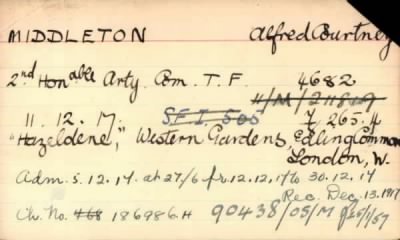 MIDDLETON Alfred Courtney
2nd Honable Arty. Com. T.F. 4682
11/M/211819
11. 12. 17. S.F.I. 505 7 265.4
"Hazeldene," Western Gardens, Ealing Common
London, W.
Adm. 5. 12. 17. at 27/6 fr. 12. 12. 17 to 30. 12. 17
Rec. Dec. 13. 1917
Ch. No. 468 186986.H 90438/05/M